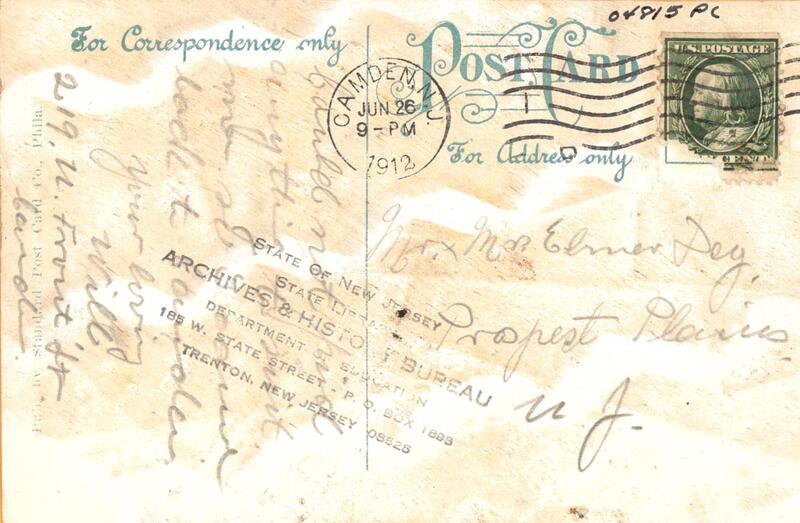 04815 PC
For Correspondence only
POST CARD
For Address only
CAMDEN, N.J.
JUN 26
9-PM
1912
U.S. POSTAGE
Mr & Mrs Elmer Dey,
Prospest Plains
N J.
STATE OF NEW JERSEY
STATE LIBRARY
ARCHIVES & HISTORY BUREAU
DEPARTMENT EDUCATION
185 W. STATE STREET - P. O. BOX 1898
TRENTON, NEW JERSEY 08625
Could not find
anything
back to Camden
your
Will
219. N. Front St
Camden
Pub. by Standard Post Card Co., Phila.